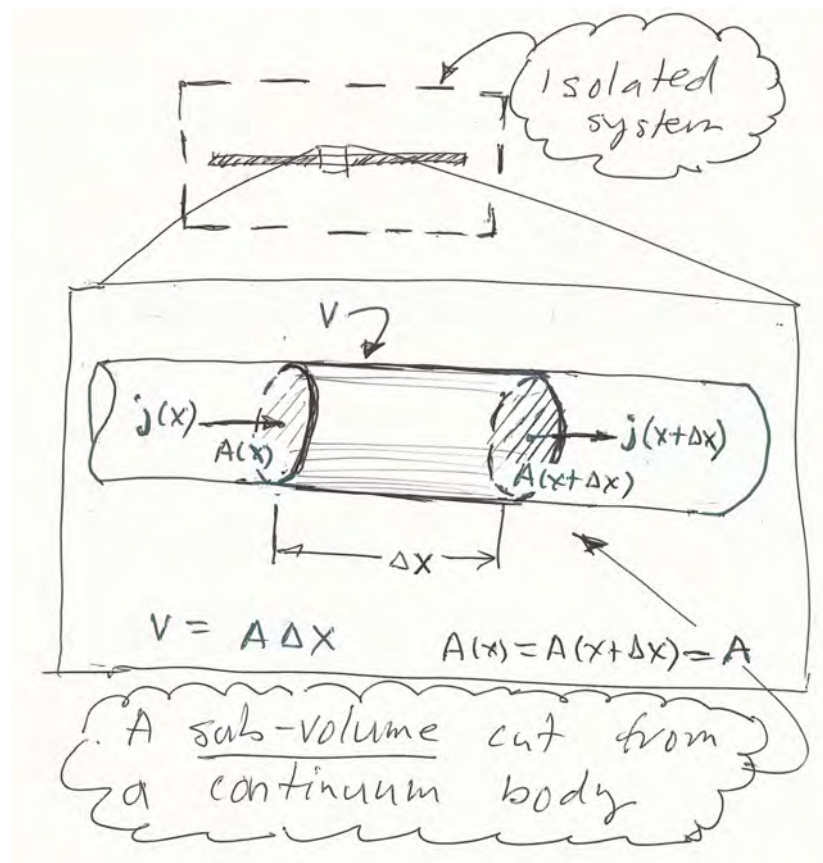 Isolated
system
V
j(x)
A(x)
j(x+Δx)
A(x+Δx)
Δx
V = A Δx
A(x) = A(x+Δx) = A
A sub-volume cut from
a continuum body